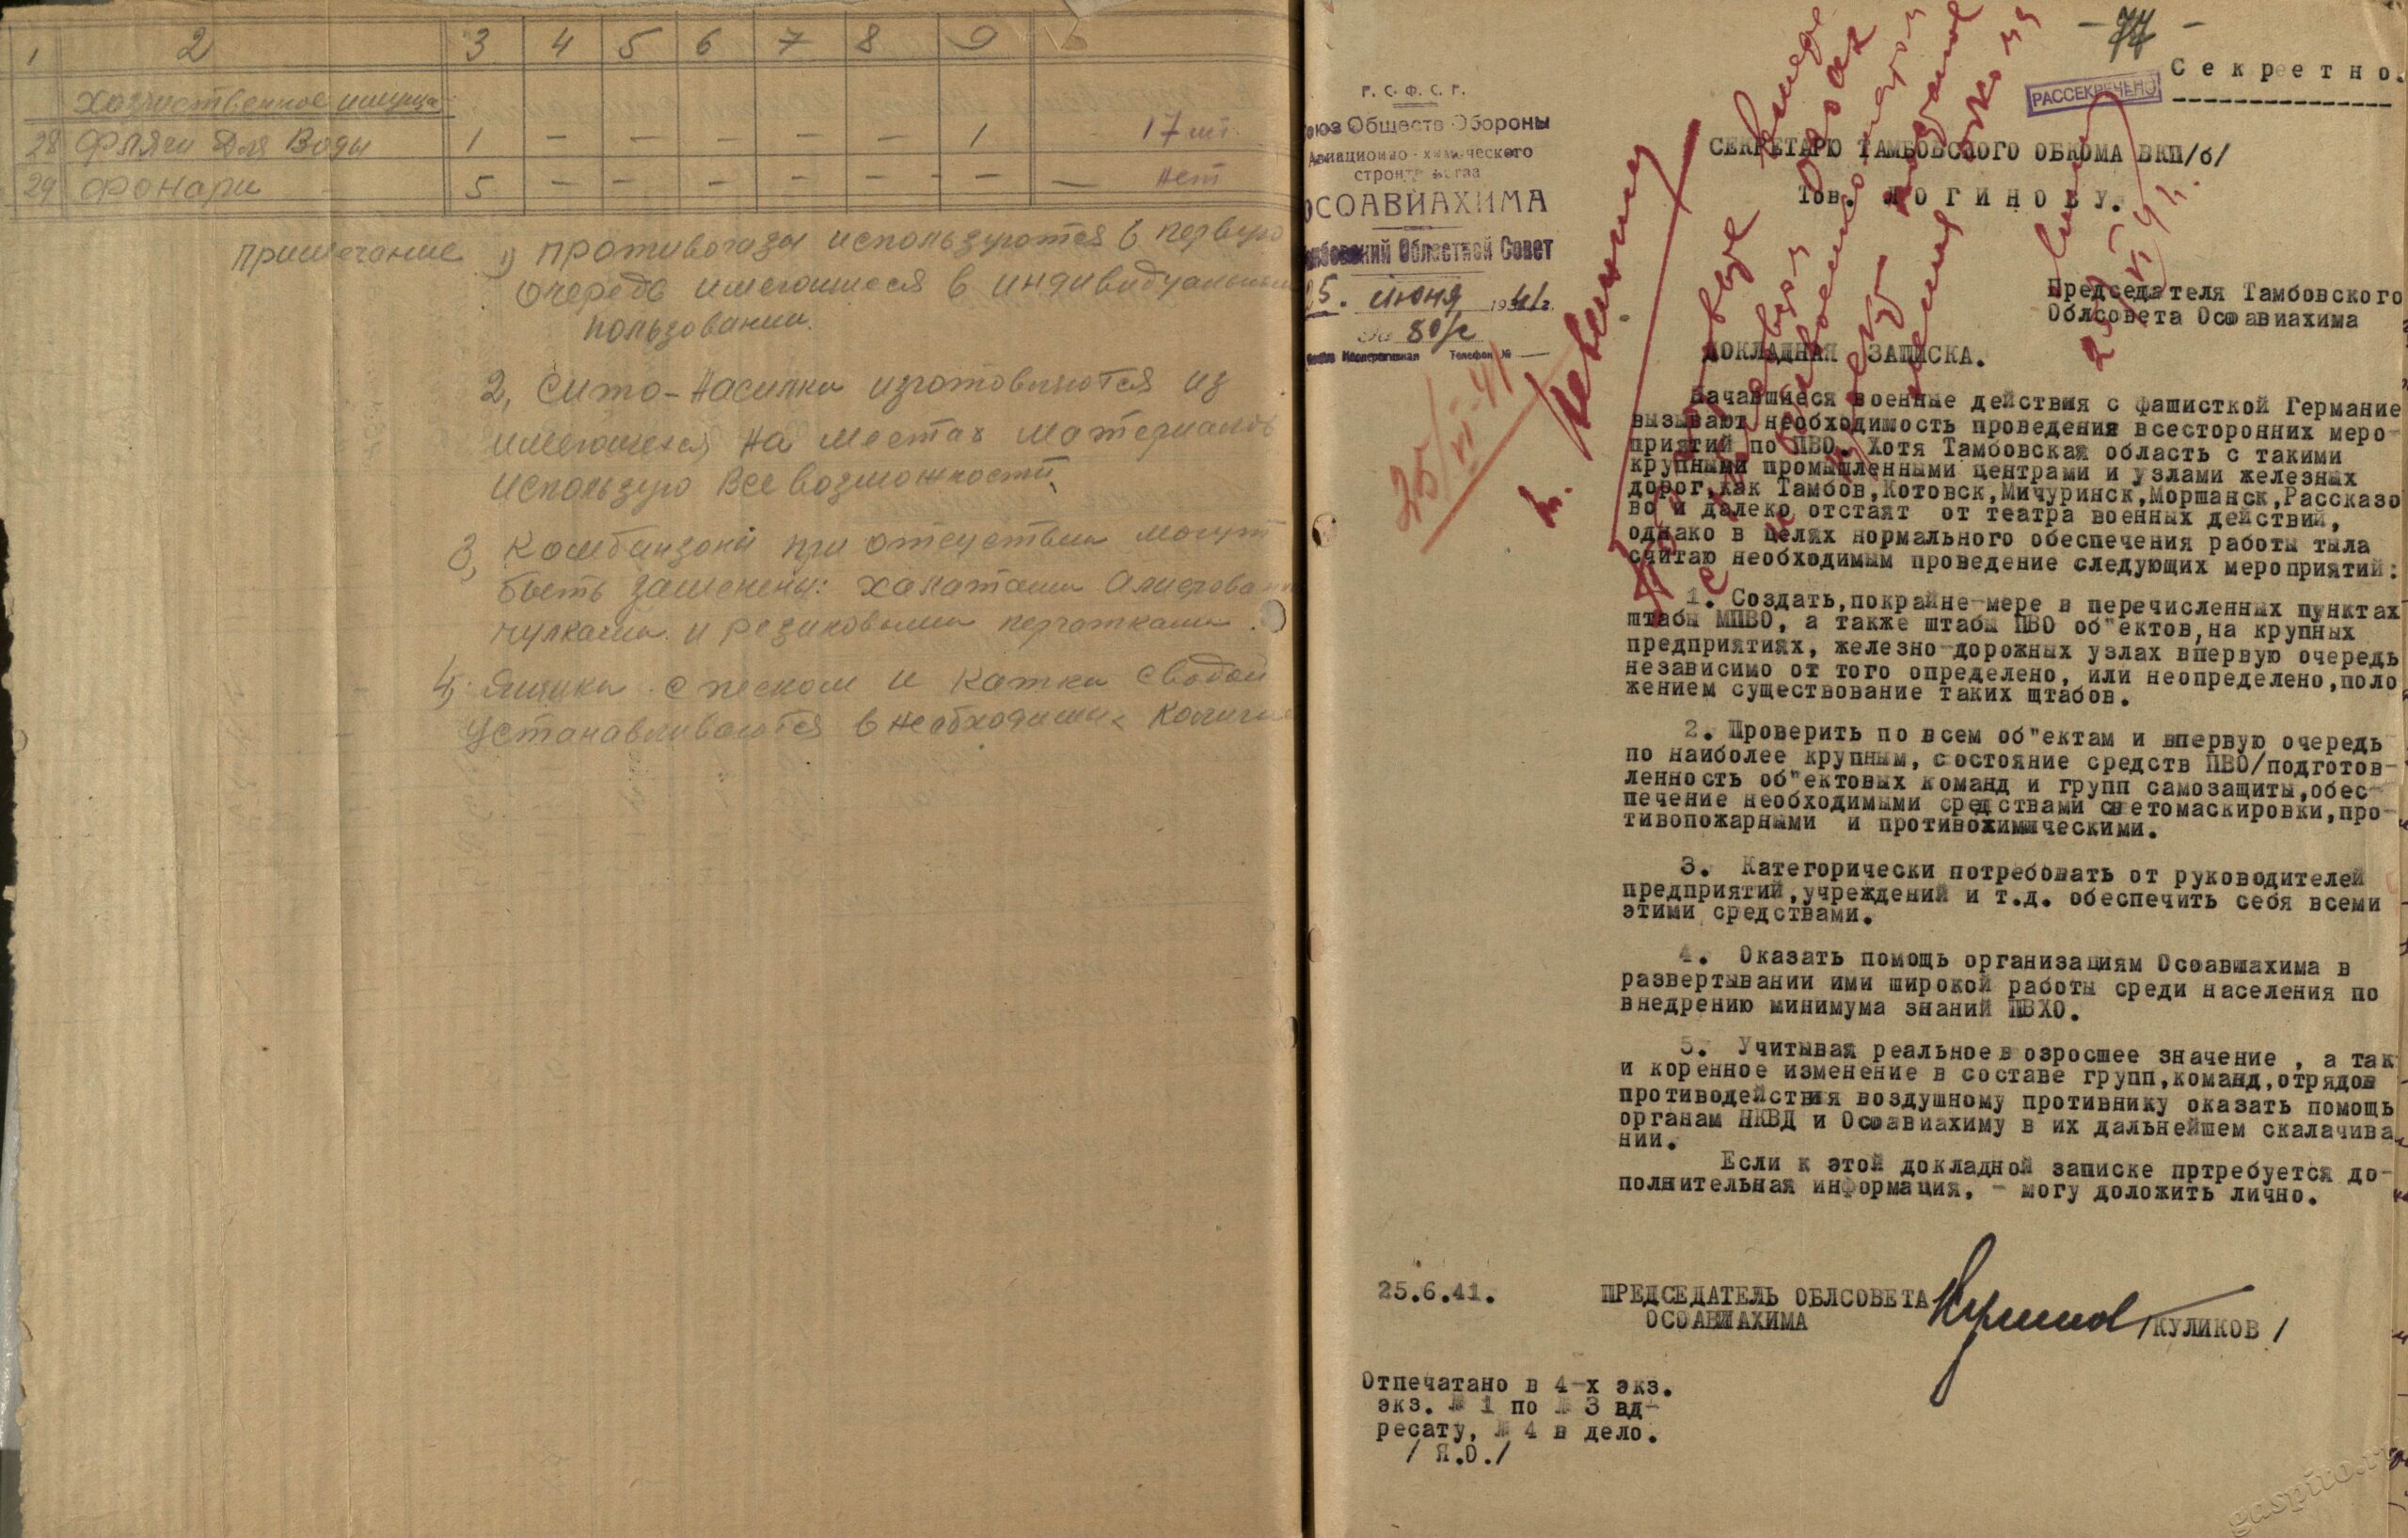 1 2 3 4 5 6 7 8 9
Хозяйственное имущ.
28 Фляги для воды 1 — — — — — 1 — 17 шт
29 Фонари 5 — — — — — — — нет
Примечание 1) противогазы используются в первую
очередь имеющиеся в индивидуальном
пользовании.
2, Сито-насилки изготовляются из
имеющихся на местах материалов
использую все возможности
3, Комбинзоны при отсутствии могут
быть заменены: халатами
чулками и резиновыми перчатками.
4, Ящики с песком и катки с водой
устанавливаются в необходимых
- 74 -
Секретно.
РАССЕКРЕЧЕНО
Р. С. Ф. С. Р.
Союз Обществ Обороны
Авиационно-химического
строительства
ОСОАВИАХИМА
Тамбовский Областной Совет
25. июня 1941г.
№ 80/с
Телефон №
25/VI-41
СЕКРЕТАРЮ ТАМБОВСКОГО ОБКОМА ВКП/б/
Тов. ЛОГИНОВУ.
Председателя Тамбовского
Облсовета Осоавиахима
ДОКЛАДНАЯ ЗАПИСКА.
Начавшиеся военные действия с фашисткой Германие
вызывают необходимость проведения всесторонних меро-
приятий по ПВО. Хотя Тамбовская область с такими
крупными промышленными центрами и узлами железных
дорог,как Тамбов,Котовск,Мичуринск,Моршанск,Рассказо
во и далеко отстаят от театра военных действий,
однако в целях нормального обеспечения работы тыла
считаю необходимым проведение следующих мероприятий:
1. Создать,покрайне-мере в перечисленных пунктах
штабы МПВО, а также штабы ПВО об"ектов,на крупных
предприятиях, железно-дорожных узлах впервую очередь
независимо от того определено, или неопределено,поло
жением существование таких штабов.
2. Проверить по всем об"ектам и впервую очередь
по наиболее крупным, состояние средств ПВО/подготов-
ленность об"ектовых команд и групп самозащиты,обес-
печение необходимыми средствами светомаскировки,про-
тивопожарными и противохимическими.
3. Категорически потребовать от руководителей
предприятий,учреждений и т.д. обеспечить себя всеми
этими средствами.
4. Оказать помощь организациям Осоавиахима в
развертывании ими широкой работы среди населения по
внедрению минимума знаний ПВХО.
5. Учитывая реальное возросшее значение , а так
и коренное изменение в составе групп,команд,отрядов
противодействия воздушному противнику оказать помощь
органам НКВД и Осоавиахиму в их дальнейшем скалачива
нии.
Если к этой докладной записке пртребуется до-
полнительная информация, - могу доложить лично.
25.6.41. ПРЕДСЕДАТЕЛЬ ОБЛСОВЕТА
ОСОАВИАХИМА /КУЛИКОВ/
Отпечатано в 4-х экз.
экз. № 1 по № 3 ад-
ресату, № 4 в дело.
/ Я.О./
gaspito.ru